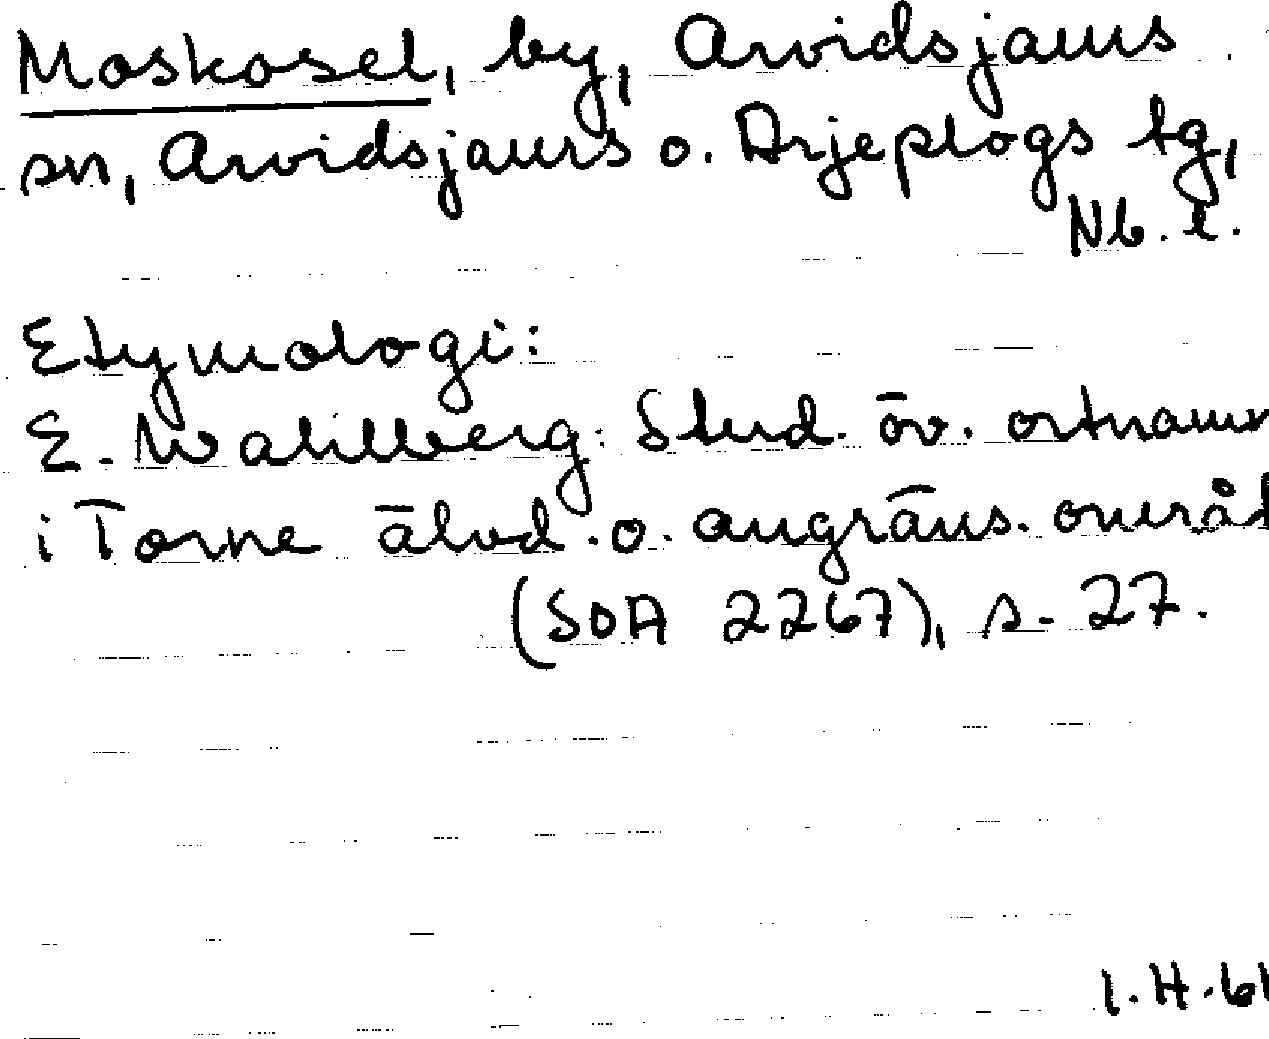 Moskosel, by, Arvidsjaurs
sn, Arvidsjaurs o. Arjeplogs tg,
Nb. l.
Etymologi:
E. Wahlberg: Stud. öv. ortnamn
i Torne älvd. o. angräns. områd
(SOA 2267), s. 27.
I.H.61